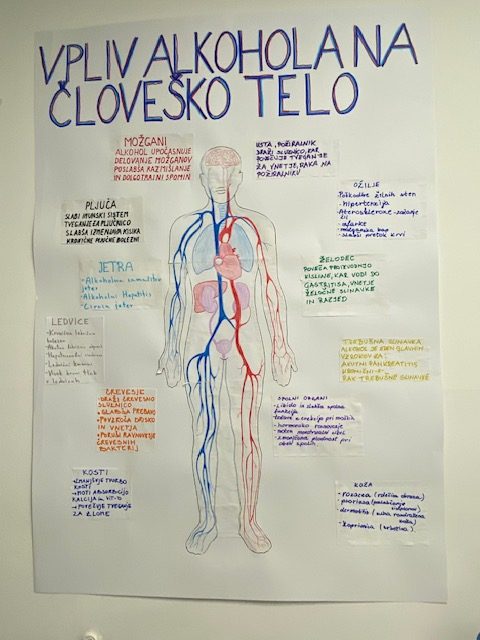 VPLIV ALKOHOLA NA
ČLOVEŠKO TELO
MOŽGANI
ALKOHOL UPOČASNUJE
DELOVANJE MOŽGANOV
POSLABŠA RAZMIŠLANJE
IN DOLGOTRAJNI SPOMIN
USTA, POŽIRALNIK
DRAŽI SLUZNICO, KAR
POVEČUJE TVEGANJE
ZA VNETJE, RAKA NA
POŽIRALNIKU
PLJUČA
SLABI IMUNSKI SISTEM
TVEGANJE ZA PLJUČNICO
SLABŠA IZMENJAVA KISIKA
KRONIČNE PLJUČNE BOLEZNI
OŽILJE
Poškodbe žilnih sten
- hipertenzija
- Ateroskleroza
- možganska kap
- slabši pretok krvi
JETRA
- Alkoholna
jeter
- Alkoholni Hepatitis
- Ciroza jeter
ŽELODEC
POVEČA PROIZVODNJO
KISLINE, KAR VODI DO
GASTRITISA, VNETJE
ŽELOČNE SLINAVKE
IN RAZJED
LEDVICE
- Kronična ledvična
bolezen
- Akutna
- Ledvični kamni
- Visok krvni tlak
v ledvicah
TREBUŠNA SLINAVKA
ALKOHOL JE EDEN GLAVNIH
VZROKOV ZA:
AKUTNI PANKREATITIS
KRONIČNI -"-
RAK TREBUŠNE SLINAVKE
ČREVESJE
- DRAŽI ČREVESNO
SLUZNICO
- SLABŠA PREBAVO
- POVZROČA DRISKO
IN VNETJA
- PORUŠI RAVNOVESJE
ČREVESNIH
BAKTERIJ
SPOLNI ORGANI
- Libido in slabša spolna
funkcija
težave z erekcijo pri moških
- hormonsko
menstrualni cikel
- zmanjšana plodnost pri
obeh spolih
KOSTI
- ZMANJŠUJE TVORBO
KOSTI
- MOTI ABSORBCIJO
KALCIJA in VIT-D
- POVEČUJE TVEGANJE
ZA ZLOME
KOŽA
- rosacea (rdečina obraza)
- psoriaza
- dermatitis (suha razdražena
koža)